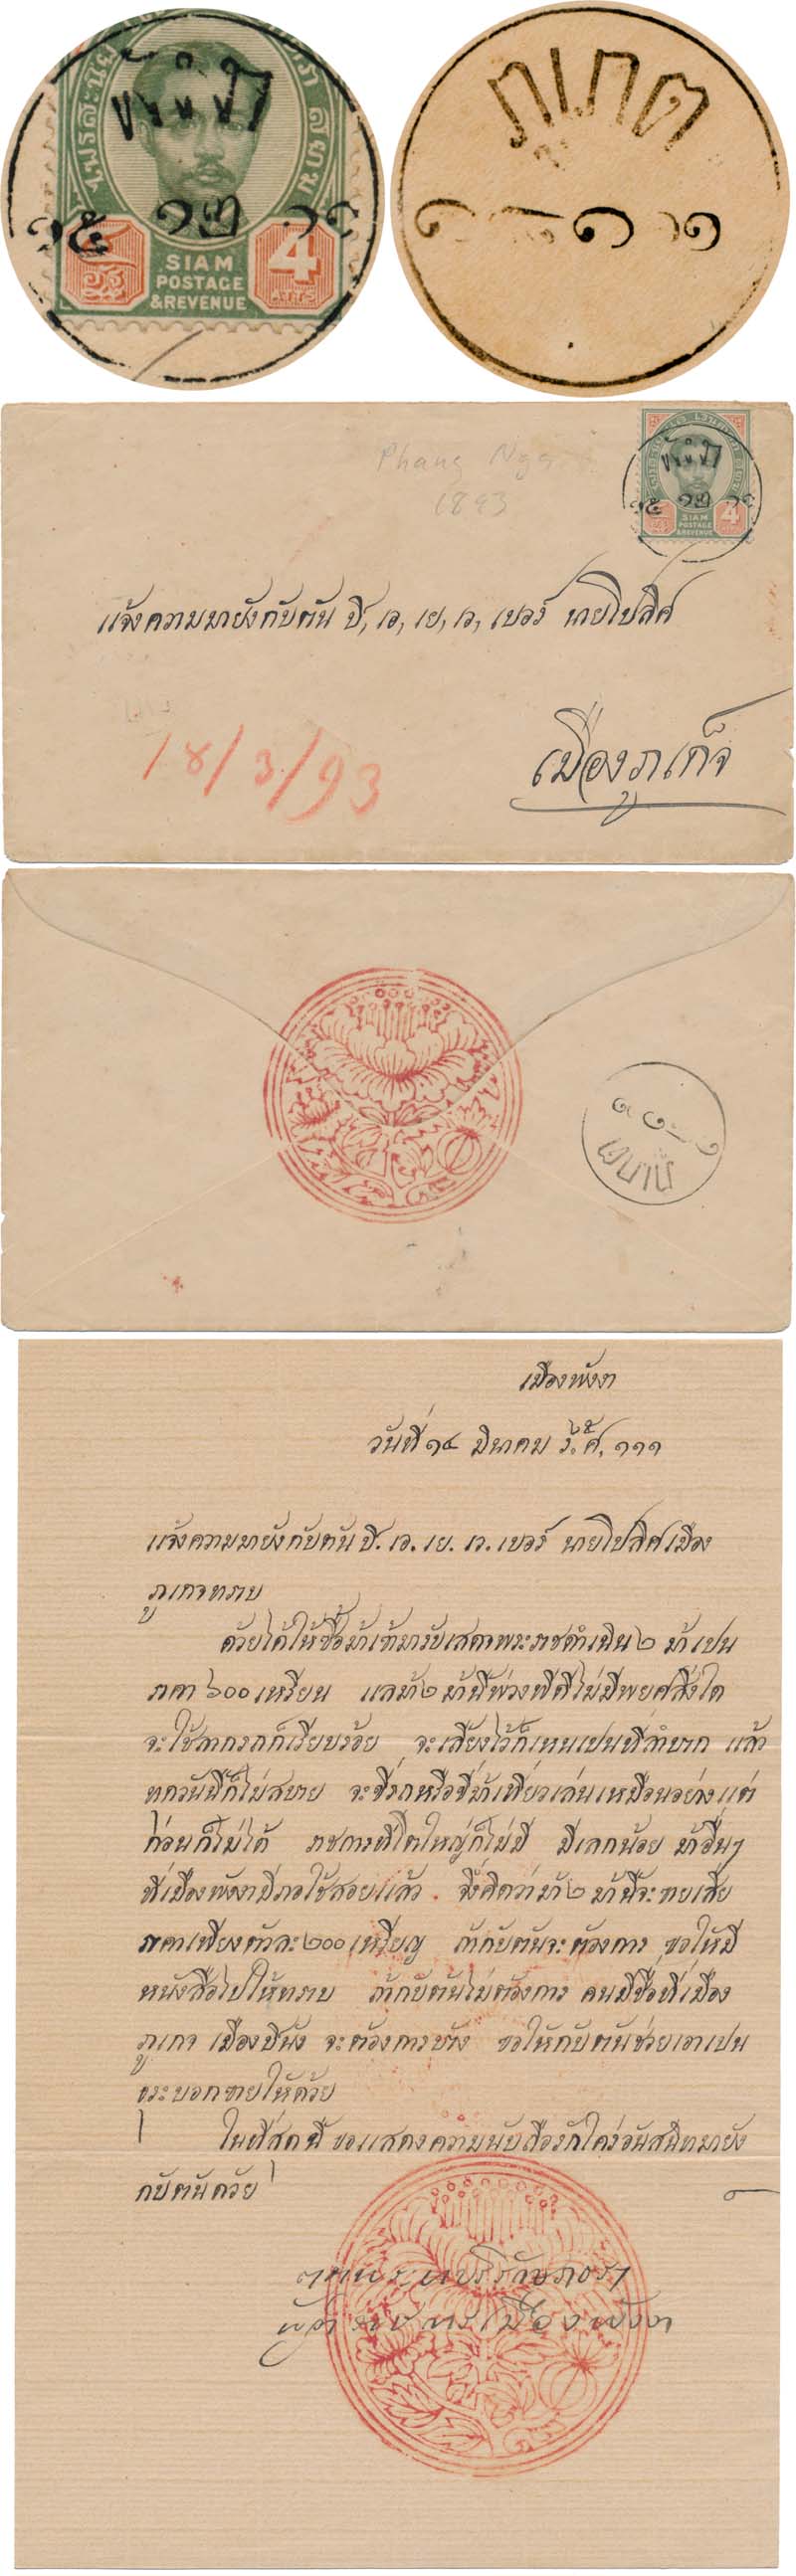 SIAM
POSTAGE
& REVENUE
4
ภูเกต
Phang Nga
1893
SIAM
POSTAGE
& REVENUE
4
แจ้งความมายังกับตัน ปี, เอ, เย, เว, เบอร์ นายโปลิศ
เมืองภูเก็จ
18/3/93
เมืองพังงา
วันที่ ๑๔ มีนาคม ร.ศ, ๑๑๑
แจ้งความมายังกับตัน ปี. เอ. เย. เว. เบอร์ นายโปลิศเมือง
ภูเกจทราบ
ด้วยได้ให้ซื้อม้าเทศมารับเสดจพระราชดำเนิน ๒ ม้าเปน
ราคา ๖๐๐ เหรียน แลม้า ๒ ม้านี้พ่วงพีดีไม่มีพยศสิ่งใด
จะใช้ลากรถก็เรียบร้อย จะเลี้ยงไว้ก็เหนเปนที่ลำบาก แล้ว
ทุกวันนี้ก็ไม่สบาย จะขี่รถหรือขี่ม้าเที่ยวเล่นเหมือนอย่างแต่
ก่อนก็ไม่ได้ ราชการที่โตใหญ่ก็ไม่มี มีเลกน้อย ม้าอื่นๆ
ที่เมืองพังงามีภอใช้สอยแล้ว . จึ่งคิดว่าม้า ๒ ม้านี้จะขายเสีย
ราคาเพียงตัวละ ๒๐๐ เหรียญ ถ้ากับตันจะต้องการ ขอให้มี
หนังสือไปให้ทราบ ถ้ากับตันไม่ต้องการ คนมีชื่อที่เมือง
ภูเกจ เมืองปีนัง จะต้องการบ้าง ขอให้กับตันช่วยเอาเปน
ธุระบอกขายให้ด้วย
ในที่สุดนี้ ขอแสดงความนับถือรักใคร่อันสนิทมายัง
กับตันด้วย
ผู้ว่าราชการเมืองพังงา